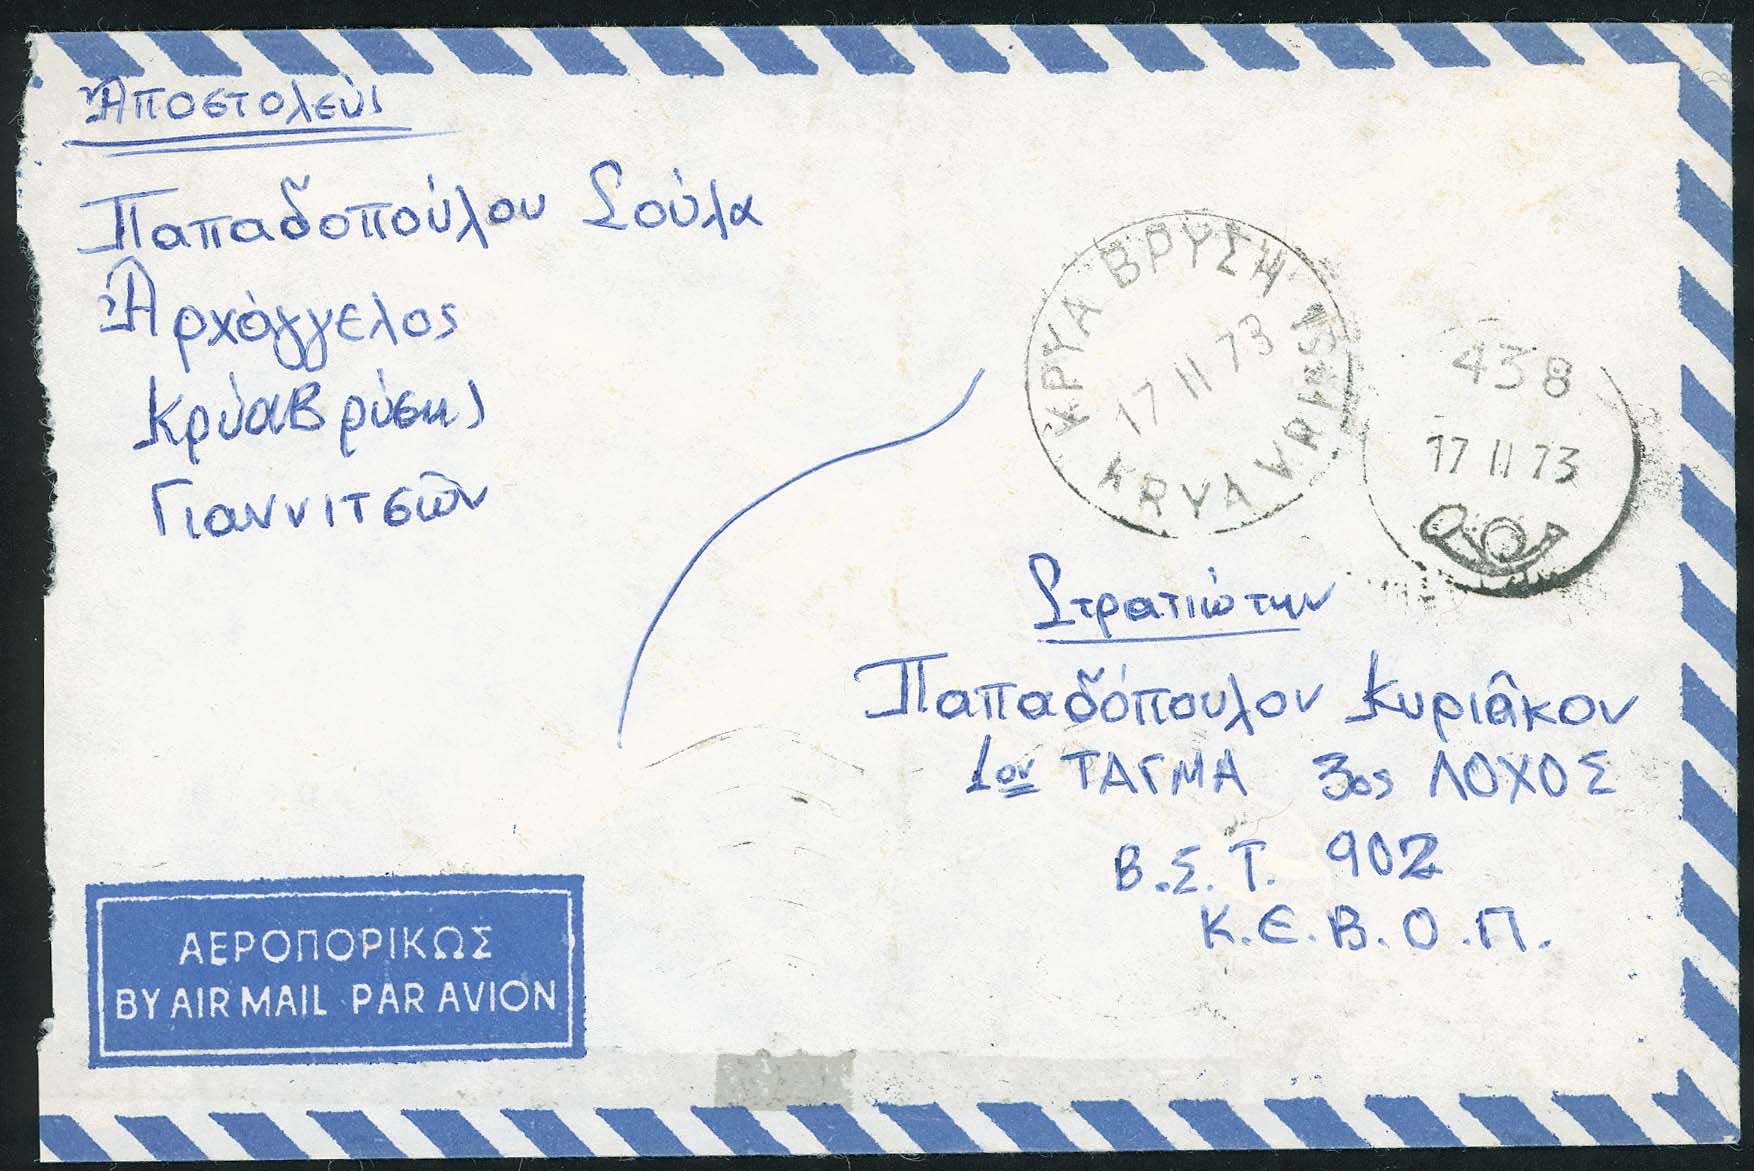 Ἀποστολεύς
Παπαδοπούλου Σούλα
Ἀρχάγγελος
ΚρύαΒρύσης
Γιαννιτσῶν
ΚΡΥΑ ΒΡΥΣΗ
17 II 73
KRYA VRISI
438
17 II 73
Στρατιώτην
Παπαδόπουλον Κυριᾶκον
1ον ΤΑΓΜΑ 3ος ΛΟΧΟΣ
Β.Σ.Τ. 902
Κ.Ε.Β.Ο.Π.
ΑΕΡΟΠΟΡΙΚΩΣ
BY AIR MAIL PAR AVION